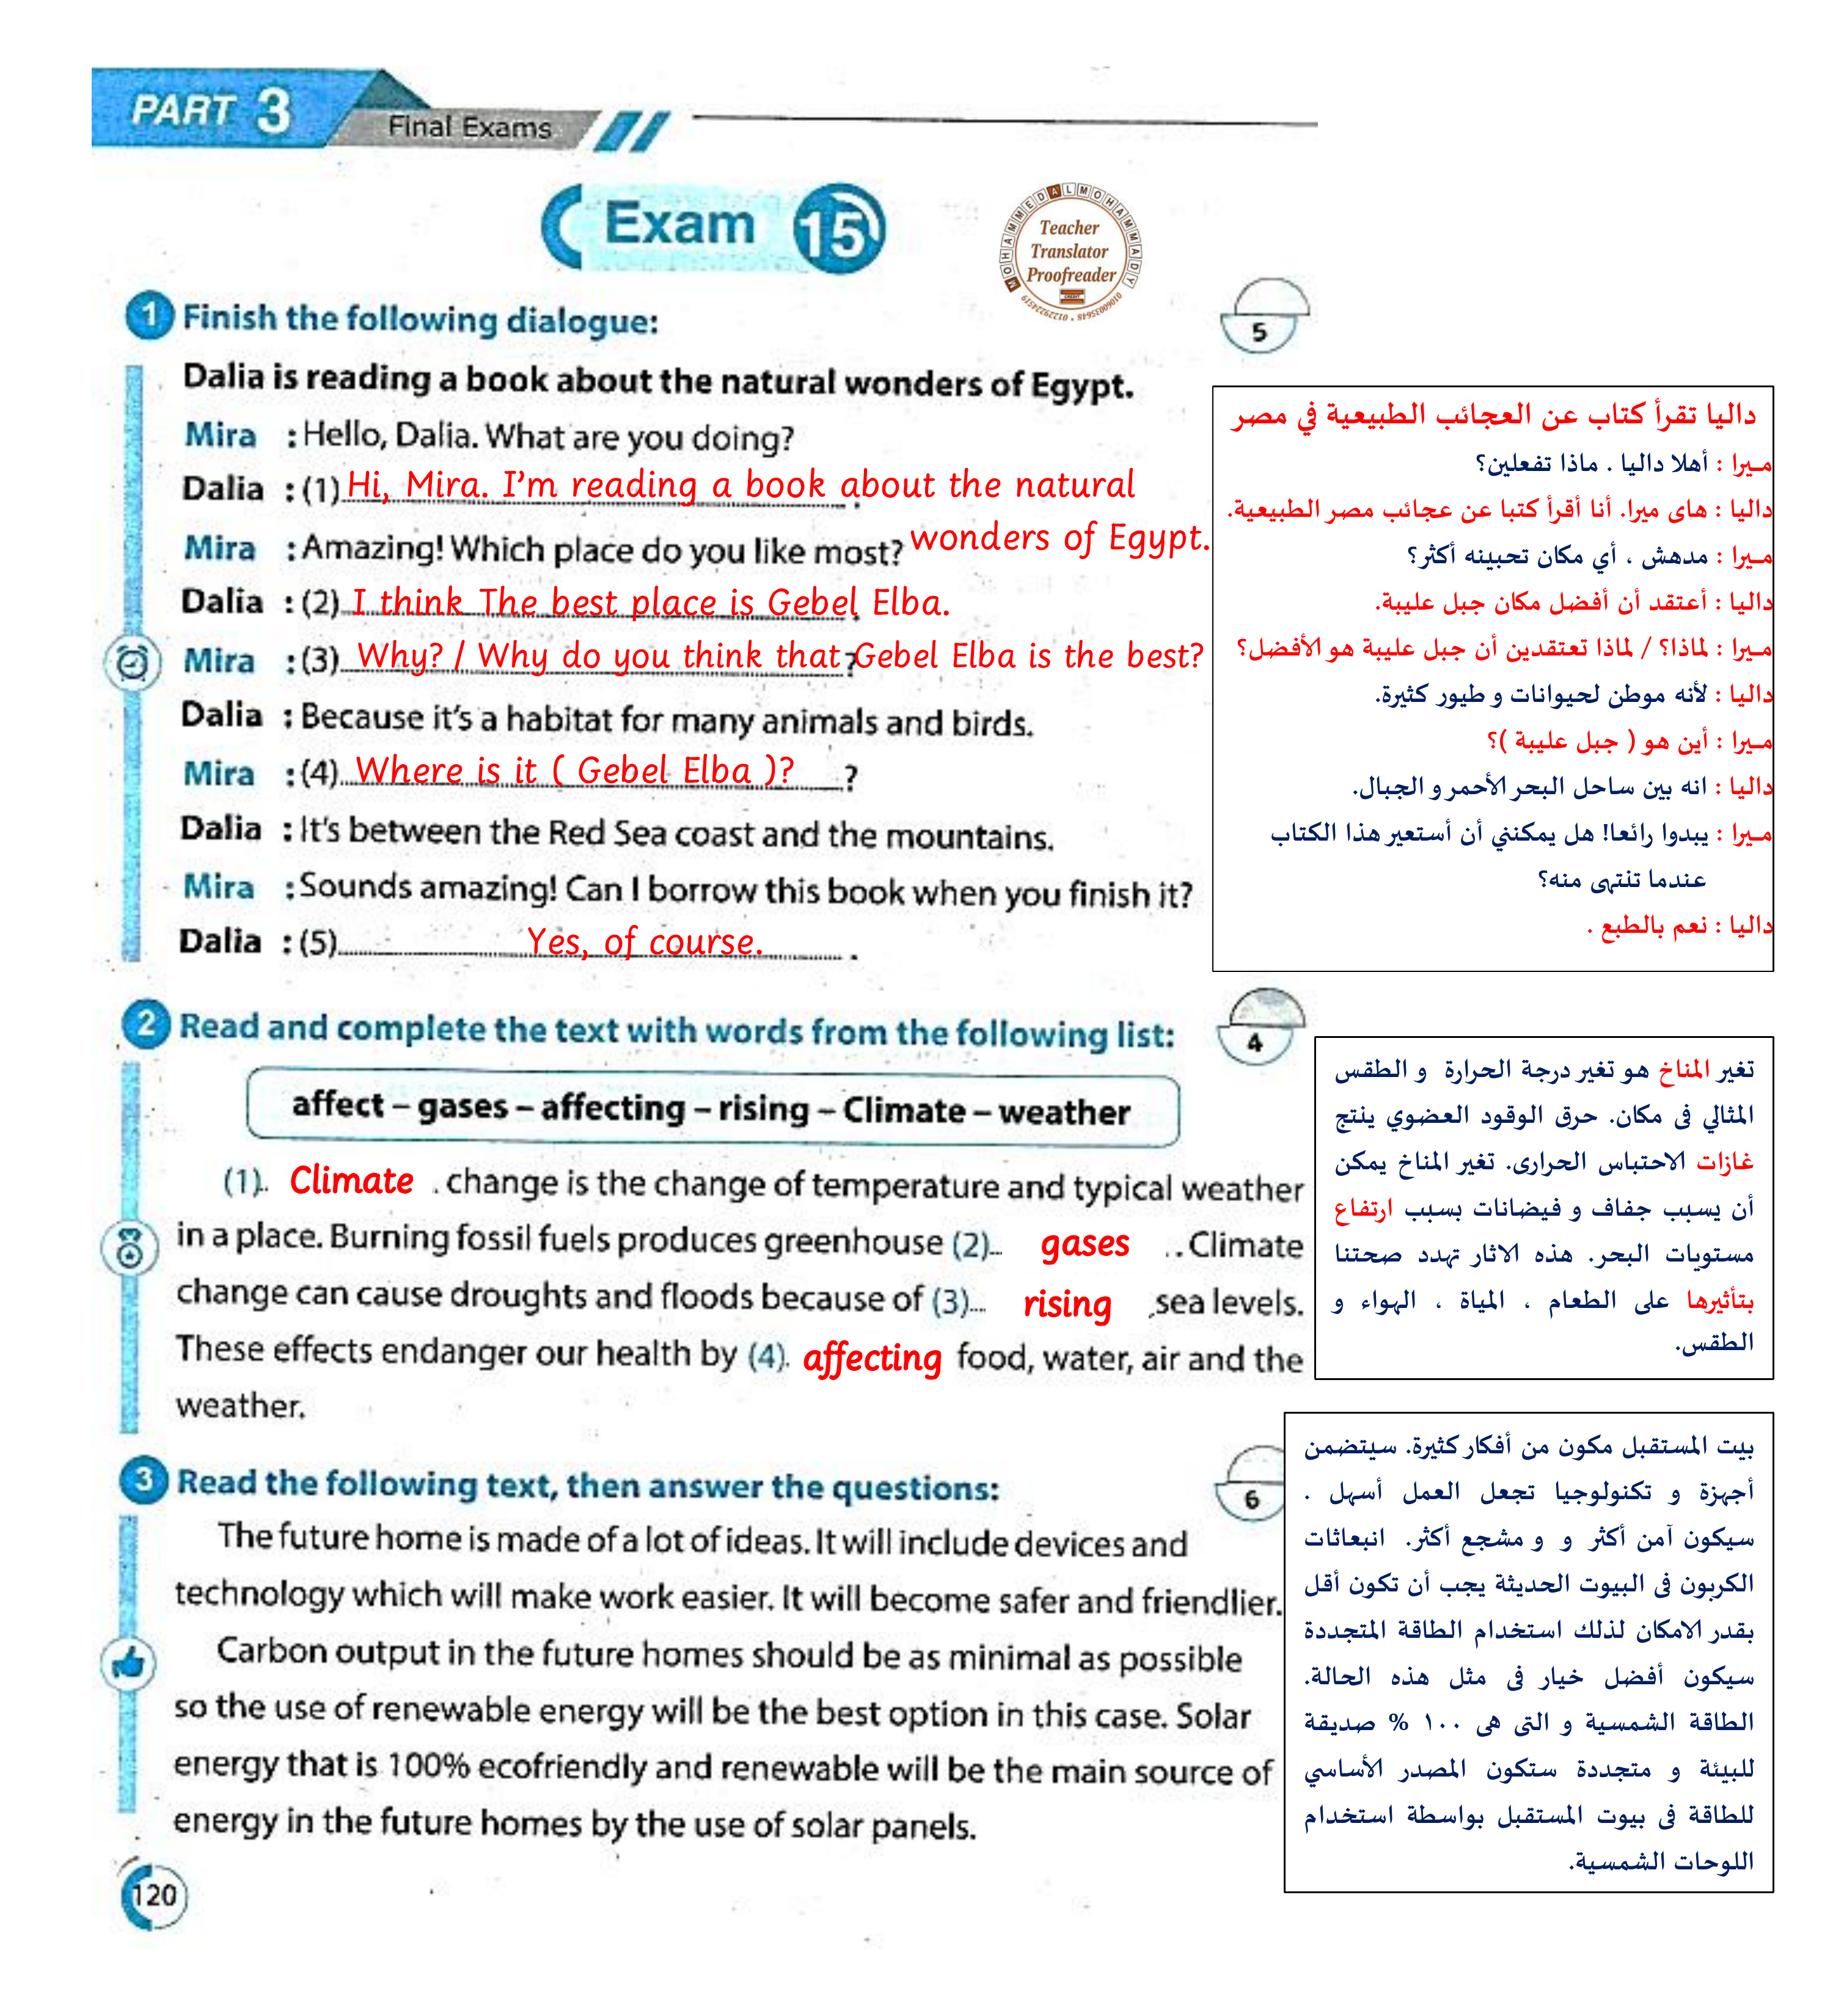 PART 3
Final Exams
Exam 15
MOHAMMED ALMOHAMMADY
Teacher
Translator
Proofreader
1 Finish the following dialogue:
5
Dalia is reading a book about the natural wonders of Egypt.
Mira : Hello, Dalia. What are you doing?
Dalia : (1) Hi, Mira. I'm reading a book about the natural
wonders of Egypt.
Mira : Amazing! Which place do you like most?
Dalia : (2) I think The best place is Gebel Elba.
Mira : (3) Why? / Why do you think that Gebel Elba is the best?
Dalia : Because it's a habitat for many animals and birds.
Mira : (4) Where is it ( Gebel Elba )? ?
Dalia : It's between the Red Sea coast and the mountains.
Mira : Sounds amazing! Can I borrow this book when you finish it?
Dalia : (5) Yes, of course.
داليا تقرأ كتاب عن العجائب الطبيعية في مصر
ميرا : أهلا داليا . ماذا تفعلين؟
داليا : هاى ميرا. أنا أقرأ كتبا عن عجائب مصر الطبيعية.
ميرا : مدهش ، أي مكان تحبينه أكثر؟
داليا : أعتقد أن أفضل مكان جبل عليبة.
ميرا : لماذا؟ / لماذا تعتقدين أن جبل عليبة هو الأفضل؟
داليا : لأنه موطن لحيوانات و طيور كثيرة.
ميرا : أين هو ( جبل عليبة )؟
داليا : انه بين ساحل البحر الأحمر و الجبال.
ميرا : يبدوا رائعا! هل يمكنني أن أستعير هذا الكتاب
عندما تنتهى منه؟
داليا : نعم بالطبع .
2 Read and complete the text with words from the following list:
4
affect – gases – affecting – rising – Climate – weather
(1). Climate . change is the change of temperature and typical weather
in a place. Burning fossil fuels produces greenhouse (2)... gases .. Climate
change can cause droughts and floods because of (3)... rising sea levels.
These effects endanger our health by (4). affecting food, water, air and the
weather.
تغير المناخ هو تغير درجة الحرارة و الطقس
المثالي فى مكان. حرق الوقود العضوي ينتج
غازات الاحتباس الحرارى. تغير المناخ يمكن
أن يسبب جفاف و فيضانات بسبب ارتفاع
مستويات البحر. هذه الاثار تهدد صحتنا
بتأثيرها على الطعام ، المياة ، الهواء و
الطقس.
3 Read the following text, then answer the questions:
6
The future home is made of a lot of ideas. It will include devices and
technology which will make work easier. It will become safer and friendlier.
Carbon output in the future homes should be as minimal as possible
so the use of renewable energy will be the best option in this case. Solar
energy that is 100% ecofriendly and renewable will be the main source of
energy in the future homes by the use of solar panels.
بيت المستقبل مكون من أفكار كثيرة. سيتضمن
أجهزة و تكنولوجيا تجعل العمل أسهل .
سيكون آمن أكثر و و مشجع أكثر. انبعاثات
الكربون فى البيوت الحديثة يجب أن تكون أقل
بقدر الامكان لذلك استخدام الطاقة المتجددة
سيكون أفضل خيار فى مثل هذه الحالة.
الطاقة الشمسية و التى هى ١٠٠ % صديقة
للبيئة و متجددة ستكون المصدر الأساسي
للطاقة فى بيوت المستقبل بواسطة استخدام
اللوحات الشمسية.
120